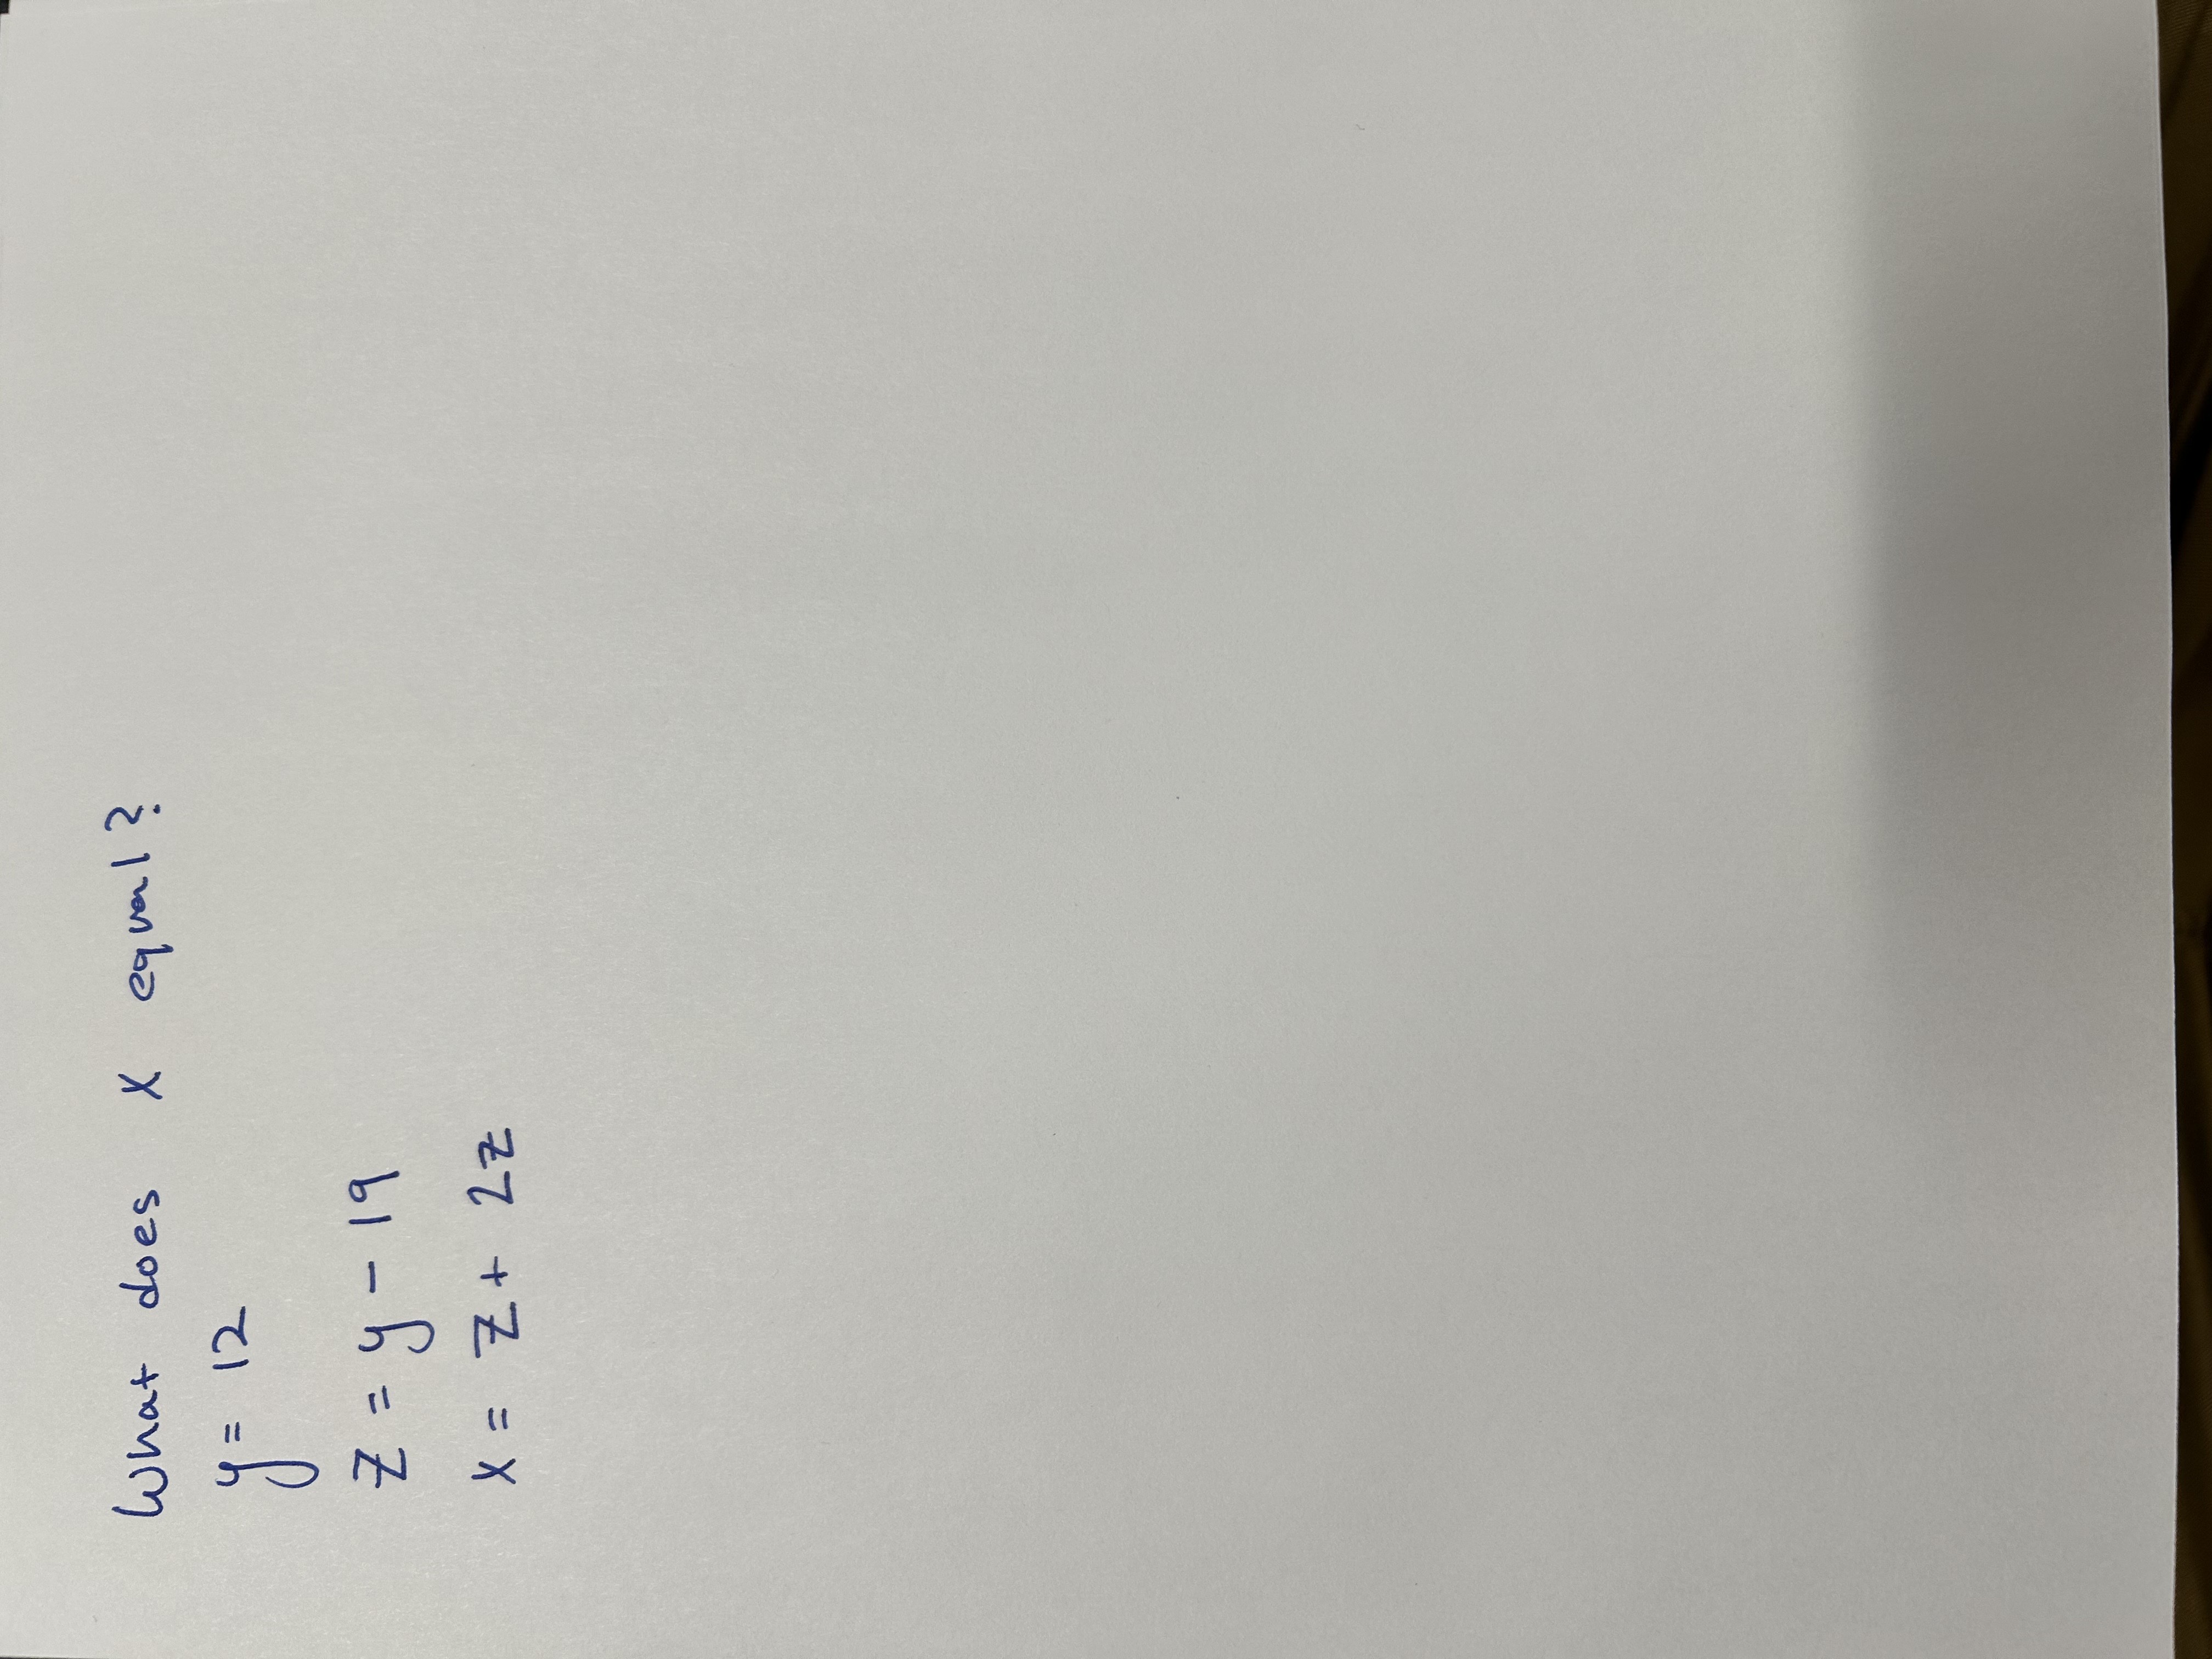 What does x equal?
y = 12
z = y - 19
x = z + 2z